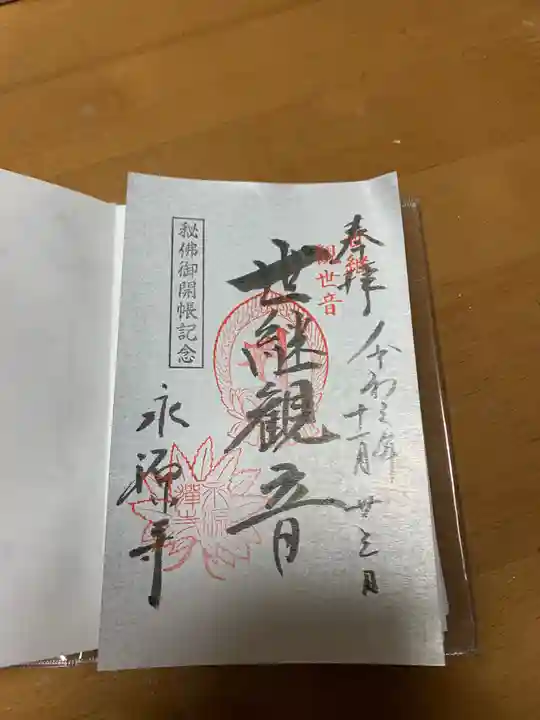 奉拝
世継
観世音
令和三年
十一月廿三日
世継観音
秘佛御開帳記念
永源寺